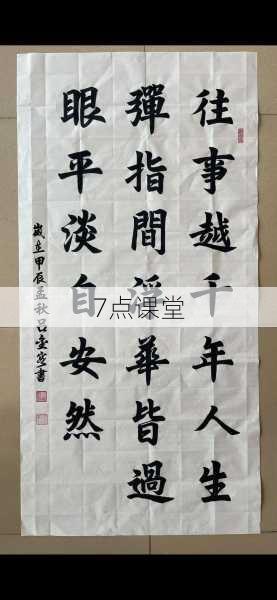 往事越千年人生
彈指間浮華皆過
眼平淡自安然
歲在甲辰孟秋呂
書
7点课堂